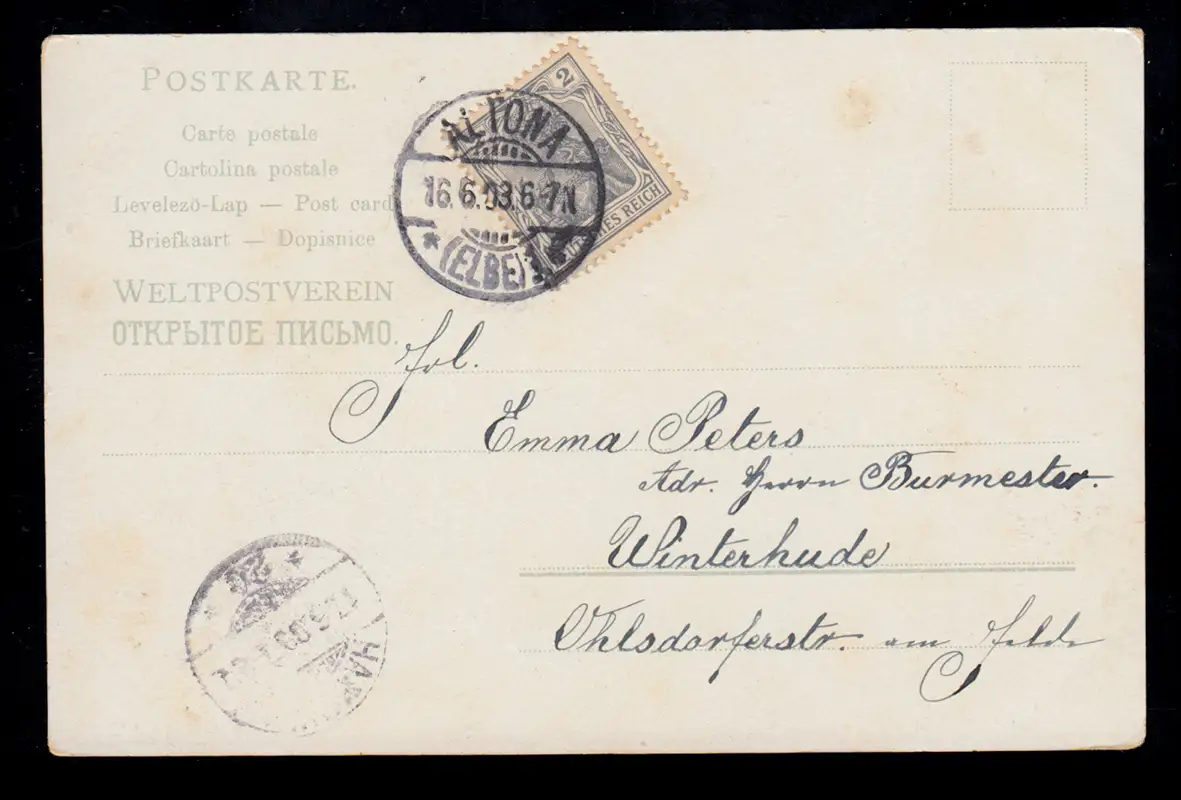 POSTKARTE.
Carte postale
Cartolina postale
Levelező-Lap — Post card
Briefkaart — Dopisnice
WELTPOSTVEREIN
ОТКРЫТОЕ ПИСЬМО.
2
DEUTSCHES REICH
ALTONA
16.6.03.6-7N
* (ELBE)
Frl.
Emma Peters
Adr. Herrn Burmester.
Winterhude
Ohlsdorferstr. am Felde